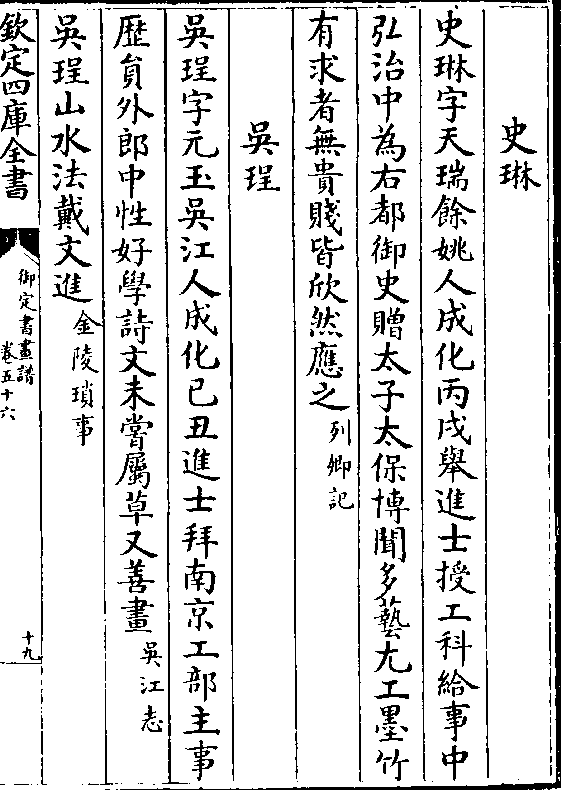 史琳
史琳字天瑞餘姚人成化丙戌舉進士授工科給事中
弘治中為右都御史贈太子太保博聞多藝尤工墨竹
有求者無貴賤皆欣然應之列卿記
吳珵
吳珵字元玉吳江人成化己丑進士拜南京工部主事
歴員外郎中性好學詩文未嘗屬草又善畫吳江志
吳珵山水法戴文進金陵瑣事
欽定四庫全書
御定書畫譜
卷五十六
十九